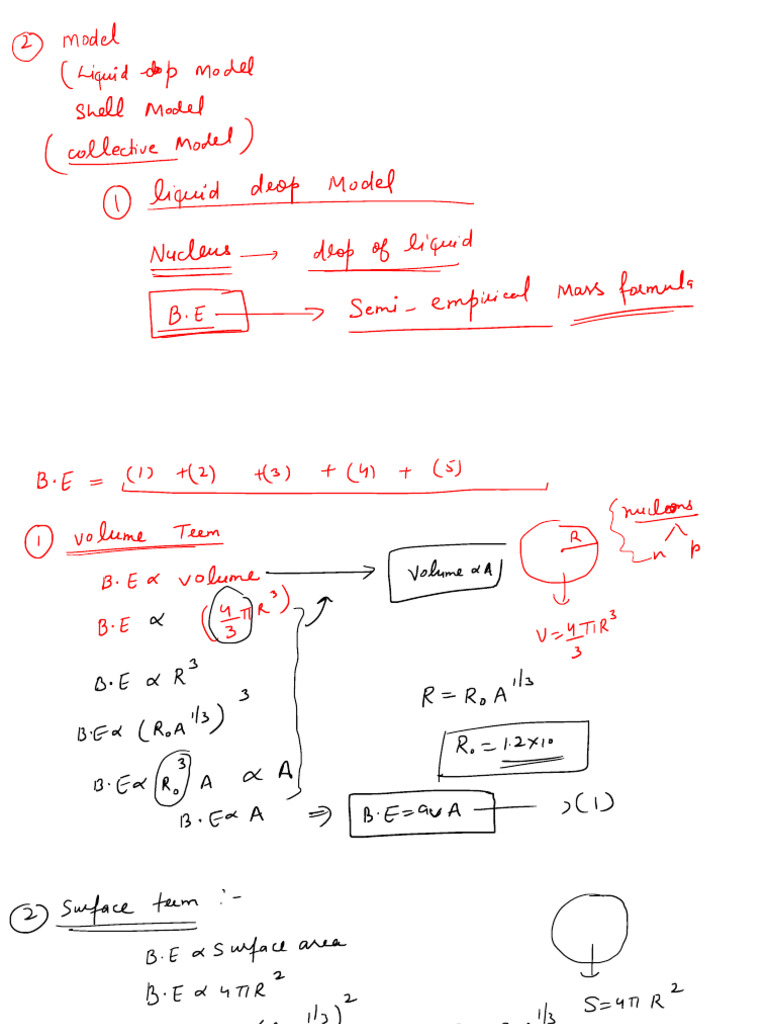 ② Model
(Liquid drop Model
Shell Model
(collective Model)
① liquid drop Model
Nucleus → drop of liquid
B.E → Semi-empirical Mass formula
B.E = (1) +(2) +(3) +(4) + (5)
① Volume Term
B.E ∝ volume → Volume ∝ A
R
{nucleons
n p
B.E ∝ (4/3 πR³)
V = 4/3 πR³
B.E ∝ R³
R = R₀ A^1/3
B.E ∝ (R₀A^1/3)³
R₀ = 1.2×10
B.E ∝ R₀³ A ∝ A
B.E ∝ A ⇒ B.E = aᵥA → (1)
② Surface term :-
B.E ∝ Surface area
B.E ∝ 4πR²
S = 4π R²
1/3)²
1/3